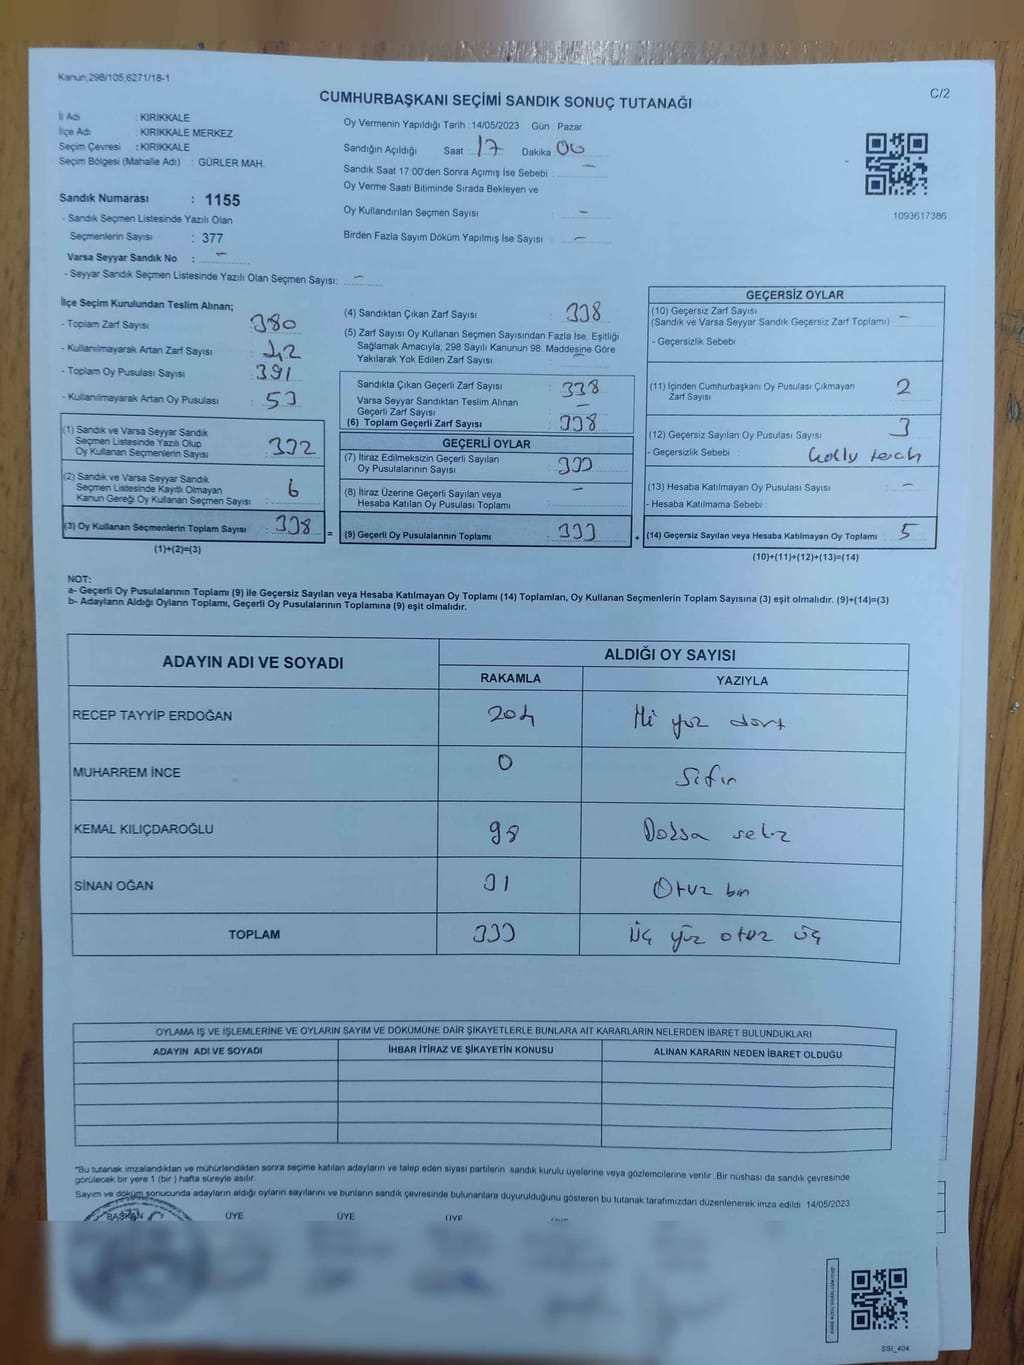 Kanun;298/105,6271/18-1
C/2
CUMHURBAŞKANI SEÇİMİ SANDIK SONUÇ TUTANAĞI
İl Adı : KIRIKKALE
İlçe Adı : KIRIKKALE MERKEZ
Seçim Çevresi : KIRIKKALE
Seçim Bölgesi (Mahalle Adı) : GÜRLER MAH.
Sandık Numarası : 1155
- Sandık Seçmen Listesinde Yazılı Olan
Seçmenlerin Sayısı : 377
Varsa Seyyar Sandık No : –
- Seyyar Sandık Seçmen Listesinde Yazılı Olan Seçmen Sayısı: –
Oy Vermenin Yapıldığı Tarih : 14/05/2023 Gün : Pazar
Sandığın Açıldığı Saat 17 Dakika 00
Sandık Saat 17:00'den Sonra Açımış İse Sebebi : –
Oy Verme Saati Bitiminde Sırada Bekleyen ve
Oy Kullandırılan Seçmen Sayısı : –
Birden Fazla Sayım Döküm Yapılmış İse Sayısı : –
1093617386
İlçe Seçim Kurulundan Teslim Alınan;
- Toplam Zarf Sayısı : 380
- Kullanılmayarak Artan Zarf Sayısı : 42
- Toplam Oy Pusulası Sayısı : 391
- Kullanılmayarak Artan Oy Pusulası : 53
(1) Sandık ve Varsa Seyyar Sandık
Seçmen Listesinde Yazılı Olup
Oy Kullanan Seçmenlerin Sayısı : 332
(2) Sandık ve Varsa Seyyar Sandık
Seçmen Listesinde Kayıtlı Olmayan
Kanun Gereği Oy Kullanan Seçmen Sayısı : 6
(3) Oy Kullanan Seçmenlerin Toplam Sayısı : 338
(1)+(2)=(3)
=
(4) Sandıktan Çıkan Zarf Sayısı : 338
(5) Zarf Sayısı Oy Kullanan Seçmen Sayısından Fazla İse, Eşitliği
Sağlamak Amacıyla; 298 Sayılı Kanunun 98. Maddesine Göre
Yakılarak Yok Edilen Zarf Sayısı : –
Sandıkta Çıkan Geçerli Zarf Sayısı : 338
Varsa Seyyar Sandıktan Teslim Alınan
Geçerli Zarf Sayısı : –
(6) Toplam Geçerli Zarf Sayısı : 338
GEÇERLİ OYLAR
(7) İtiraz Edilmeksizin Geçerli Sayılan
Oy Pusulalarının Sayısı : 333
(8) İtiraz Üzerine Geçerli Sayılan veya
Hesaba Katılan Oy Pusulası Toplamı : –
(9) Geçerli Oy Pusulalarının Toplamı : 333
+
GEÇERSİZ OYLAR
(10) Geçersiz Zarf Sayısı
(Sandık ve Varsa Seyyar Sandık Geçersiz Zarf Toplamı) : –
- Geçersizlik Sebebi :
(11) İçinden Cumhurbaşkanı Oy Pusulası Çıkmayan
Zarf Sayısı : 2
(12) Geçersiz Sayılan Oy Pusulası Sayısı : 3
- Geçersizlik Sebebi :
(13) Hesaba Katılmayan Oy Pusulası Sayısı : –
- Hesaba Katılmama Sebebi :
(14) Geçersiz Sayılan veya Hesaba Katılmayan Oy Toplamı : 5
(10)+(11)+(12)+(13)=(14)
NOT:
a- Geçerli Oy Pusulalarının Toplamı (9) ile Geçersiz Sayılan veya Hesaba Katılmayan Oy Toplamı (14) Toplamları, Oy Kullanan Seçmenlerin Toplam Sayısına (3) eşit olmalıdır. (9)+(14)=(3)
b- Adayların Aldığı Oyların Toplamı, Geçerli Oy Pusulalarının Toplamına (9) eşit olmalıdır.
ADAYIN ADI VE SOYADI ALDIĞI OY SAYISI
RAKAMLA YAZIYLA
RECEP TAYYİP ERDOĞAN 204 İki yüz dört
MUHARREM İNCE 0 Sıfır
KEMAL KILIÇDAROĞLU 98 Doksa sekiz
SİNAN OĞAN 31 Otuz bir
TOPLAM 333 Üç yüz otuz üç
OYLAMA İŞ VE İŞLEMLERİNE VE OYLARIN SAYIM VE DÖKÜMÜNE DAİR ŞİKAYETLERLE BUNLARA AİT KARARLARIN NELERDEN İBARET BULUNDUKLARI
ADAYIN ADI VE SOYADI İHBAR İTİRAZ VE ŞİKAYETİN KONUSU ALINAN KARARIN NEDEN İBARET OLDUĞU
*Bu tutanak imzalandıktan ve mühürlendikten sonra seçime katılan adayların ve talep eden siyasi partilerin sandık kurulu üyelerine veya gözlemcilerine verilir. Bir nüshası da sandık çevresinde
görülecek bir yere 1 (bir) hafta süreyle asılır.
Sayım ve döküm sonucunda adayların aldığı oyların sayılarını ve bunların sandık çevresinde bulunanlara duyurulduğunu gösteren bu tutanak tarafımızdan düzenlenerek imza edildi. 14/05/2023
BAŞKAN ÜYE ÜYE ÜYE
SSI_404